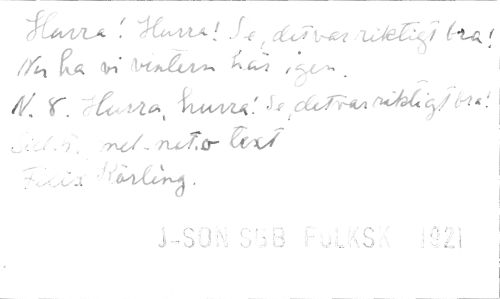 Hurra! Hurra! Se, det var riktigt bra!
Nu ha vi vintern här igen.
N. 8. Hurra, hurra! Se, det var riktigt bra!
mel. not. o text
Felix Körling.
J-SON SGB FOLKSK 1921